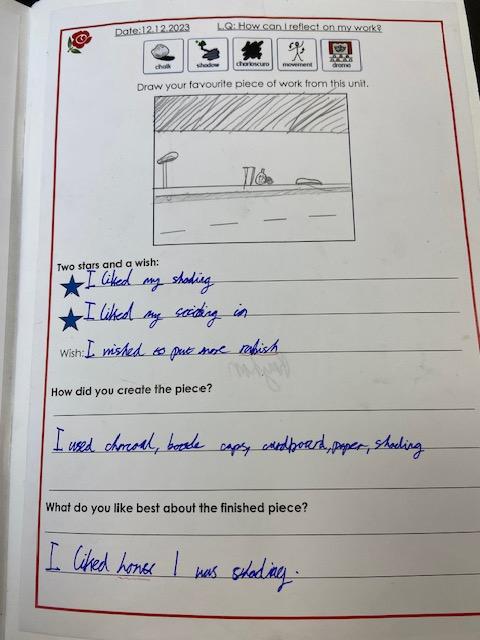 Date:12.12.2023 LQ: How can I reflect on my work?
chalk shadow chiaroscuro movement drama
Draw your favourite piece of work from this unit.
Two stars and a wish:
I liked my shading
I liked my in
Wish: I wished to put more rubish
How did you create the piece?
I used charcoal, bottle caps, cardboard, paper, shading
What do you like best about the finished piece?
I liked I was shading.